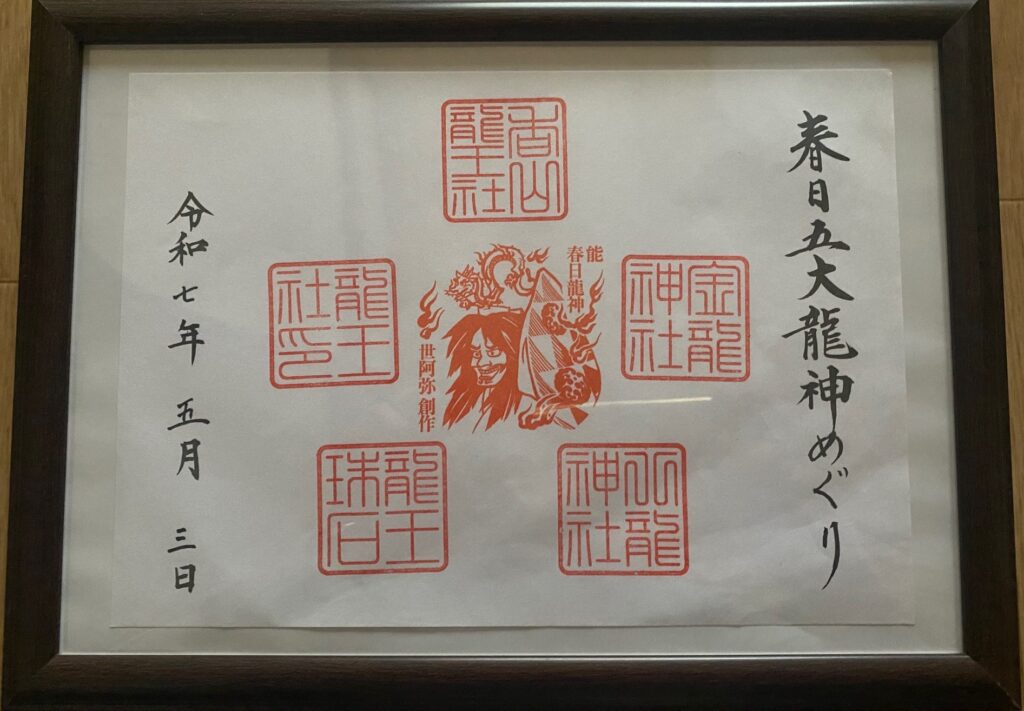 春日五大龍神めぐり
香山
龍王社
金龍
神社
能
春日龍神
世阿弥 創作
龍王
社印
八龍
神社
龍王
珠石
令和七年 五月 三日